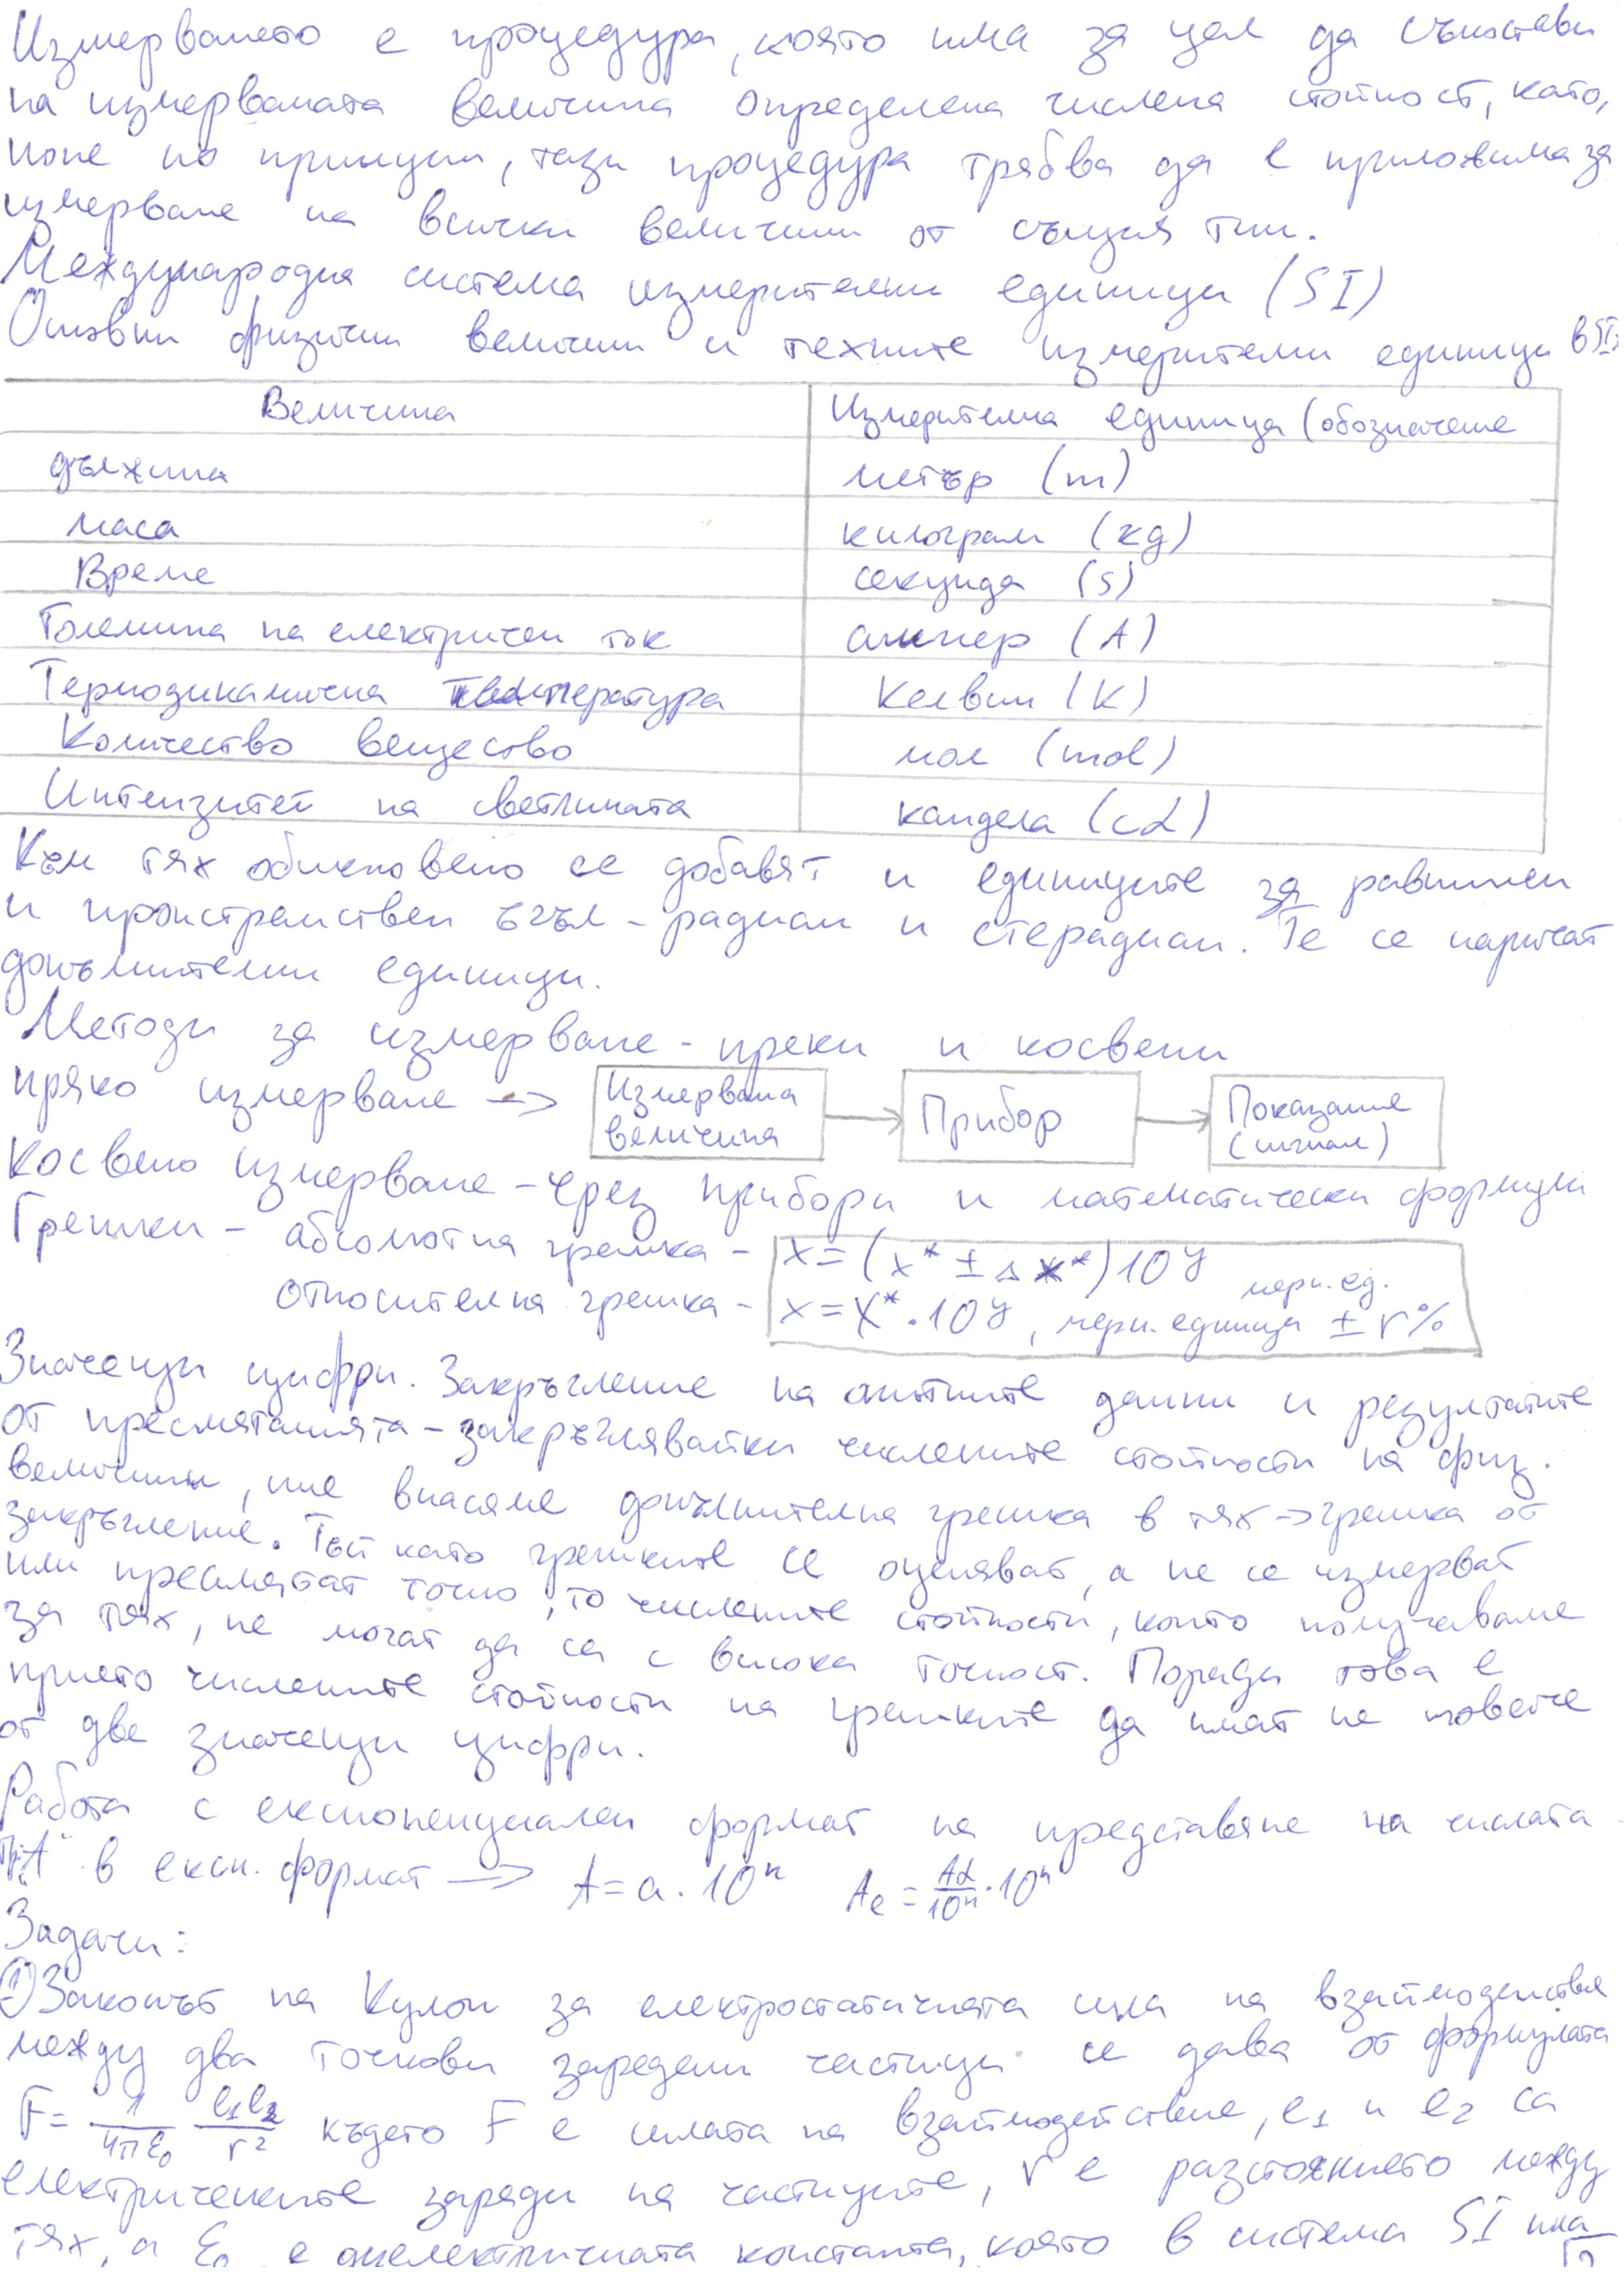 Измерването е процедура, която има за цел да съпостави
на измерваната величина определена числена стойност, като,
поне по принцип, тази процедура трябва да е приложима за
измерване на всички величини от същия тип.
Международна система измерителни единици (SI)
Основни физични величини и техните измерителни единици в SI:
Величина Измерителна единица (обозначение
дължина метър (m)
маса килограм (kg)
Време секунда (s)
Големина на електричен ток ампер (A)
Термодинамична температура Келвин (K)
Количество вещество мол (mol)
Интензитет на светлината кандела (cd)
Към тях обикновено се добавят и единиците за равнинен
и пространствен ъгъл - радиан и стерадиан. Те се наричат
допълнителни единици.
Методи за измерване - преки и косвени
пряко измерване -> Измервана величина → Прибор → Показание (сигнал)
Косвено измерване - чрез прибори и математически формули
Грешки - абсолютна грешка - x = (x* ± Δx*)10^y мерн. ед.
относителна грешка - x = x*.10^y, мерн. единици ± r%
Значещи цифри. Закръгление на опитните данни и резултатите
от пресмятанията - закръглявайки числените стойности на физ.
величини, ние внасяме допълнителна грешка в тях -> грешка от
закръгление. Тъй като грешките се оценяват, а не се измерват
или пресмятат точно, то числените стойности, които получаваме
за тях, не могат да са с висока точност. Поради това е
прието числените стойности на грешките да имат не повече
от две значещи цифри.
Работа с експоненциален формат на представяне на числата -
"A" в експ. формат -> A = a.10^n Ae = Ad/10^n.10^n
Задачи:
1) Законът на Кулон за електростатичната сила на взаимодействия
между два точкови заредени частици се дава от формулата
F = 1/4πε₀ e₁e₂/r² където F е силата на взаимодействие, e₁ и e₂ са
електричените заряди на частиците, r е разстоянието между
тях, а ε₀ е диелектричната константа, която в система SI има